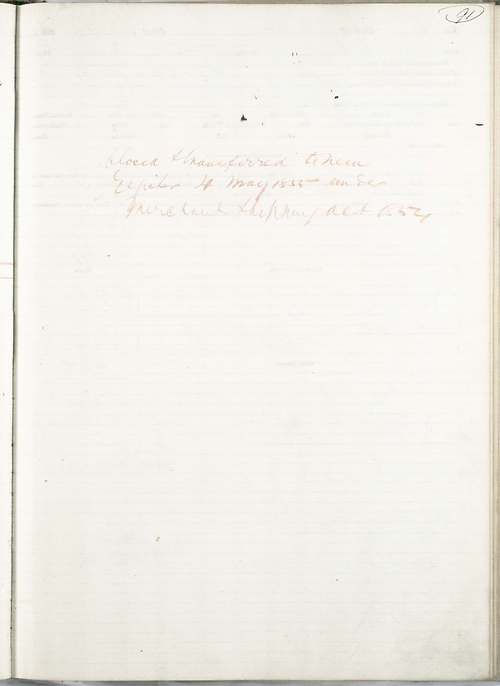 91
Closed & transferred to new
Register 14 May 1855 under
Merchant Shipping Act 1854